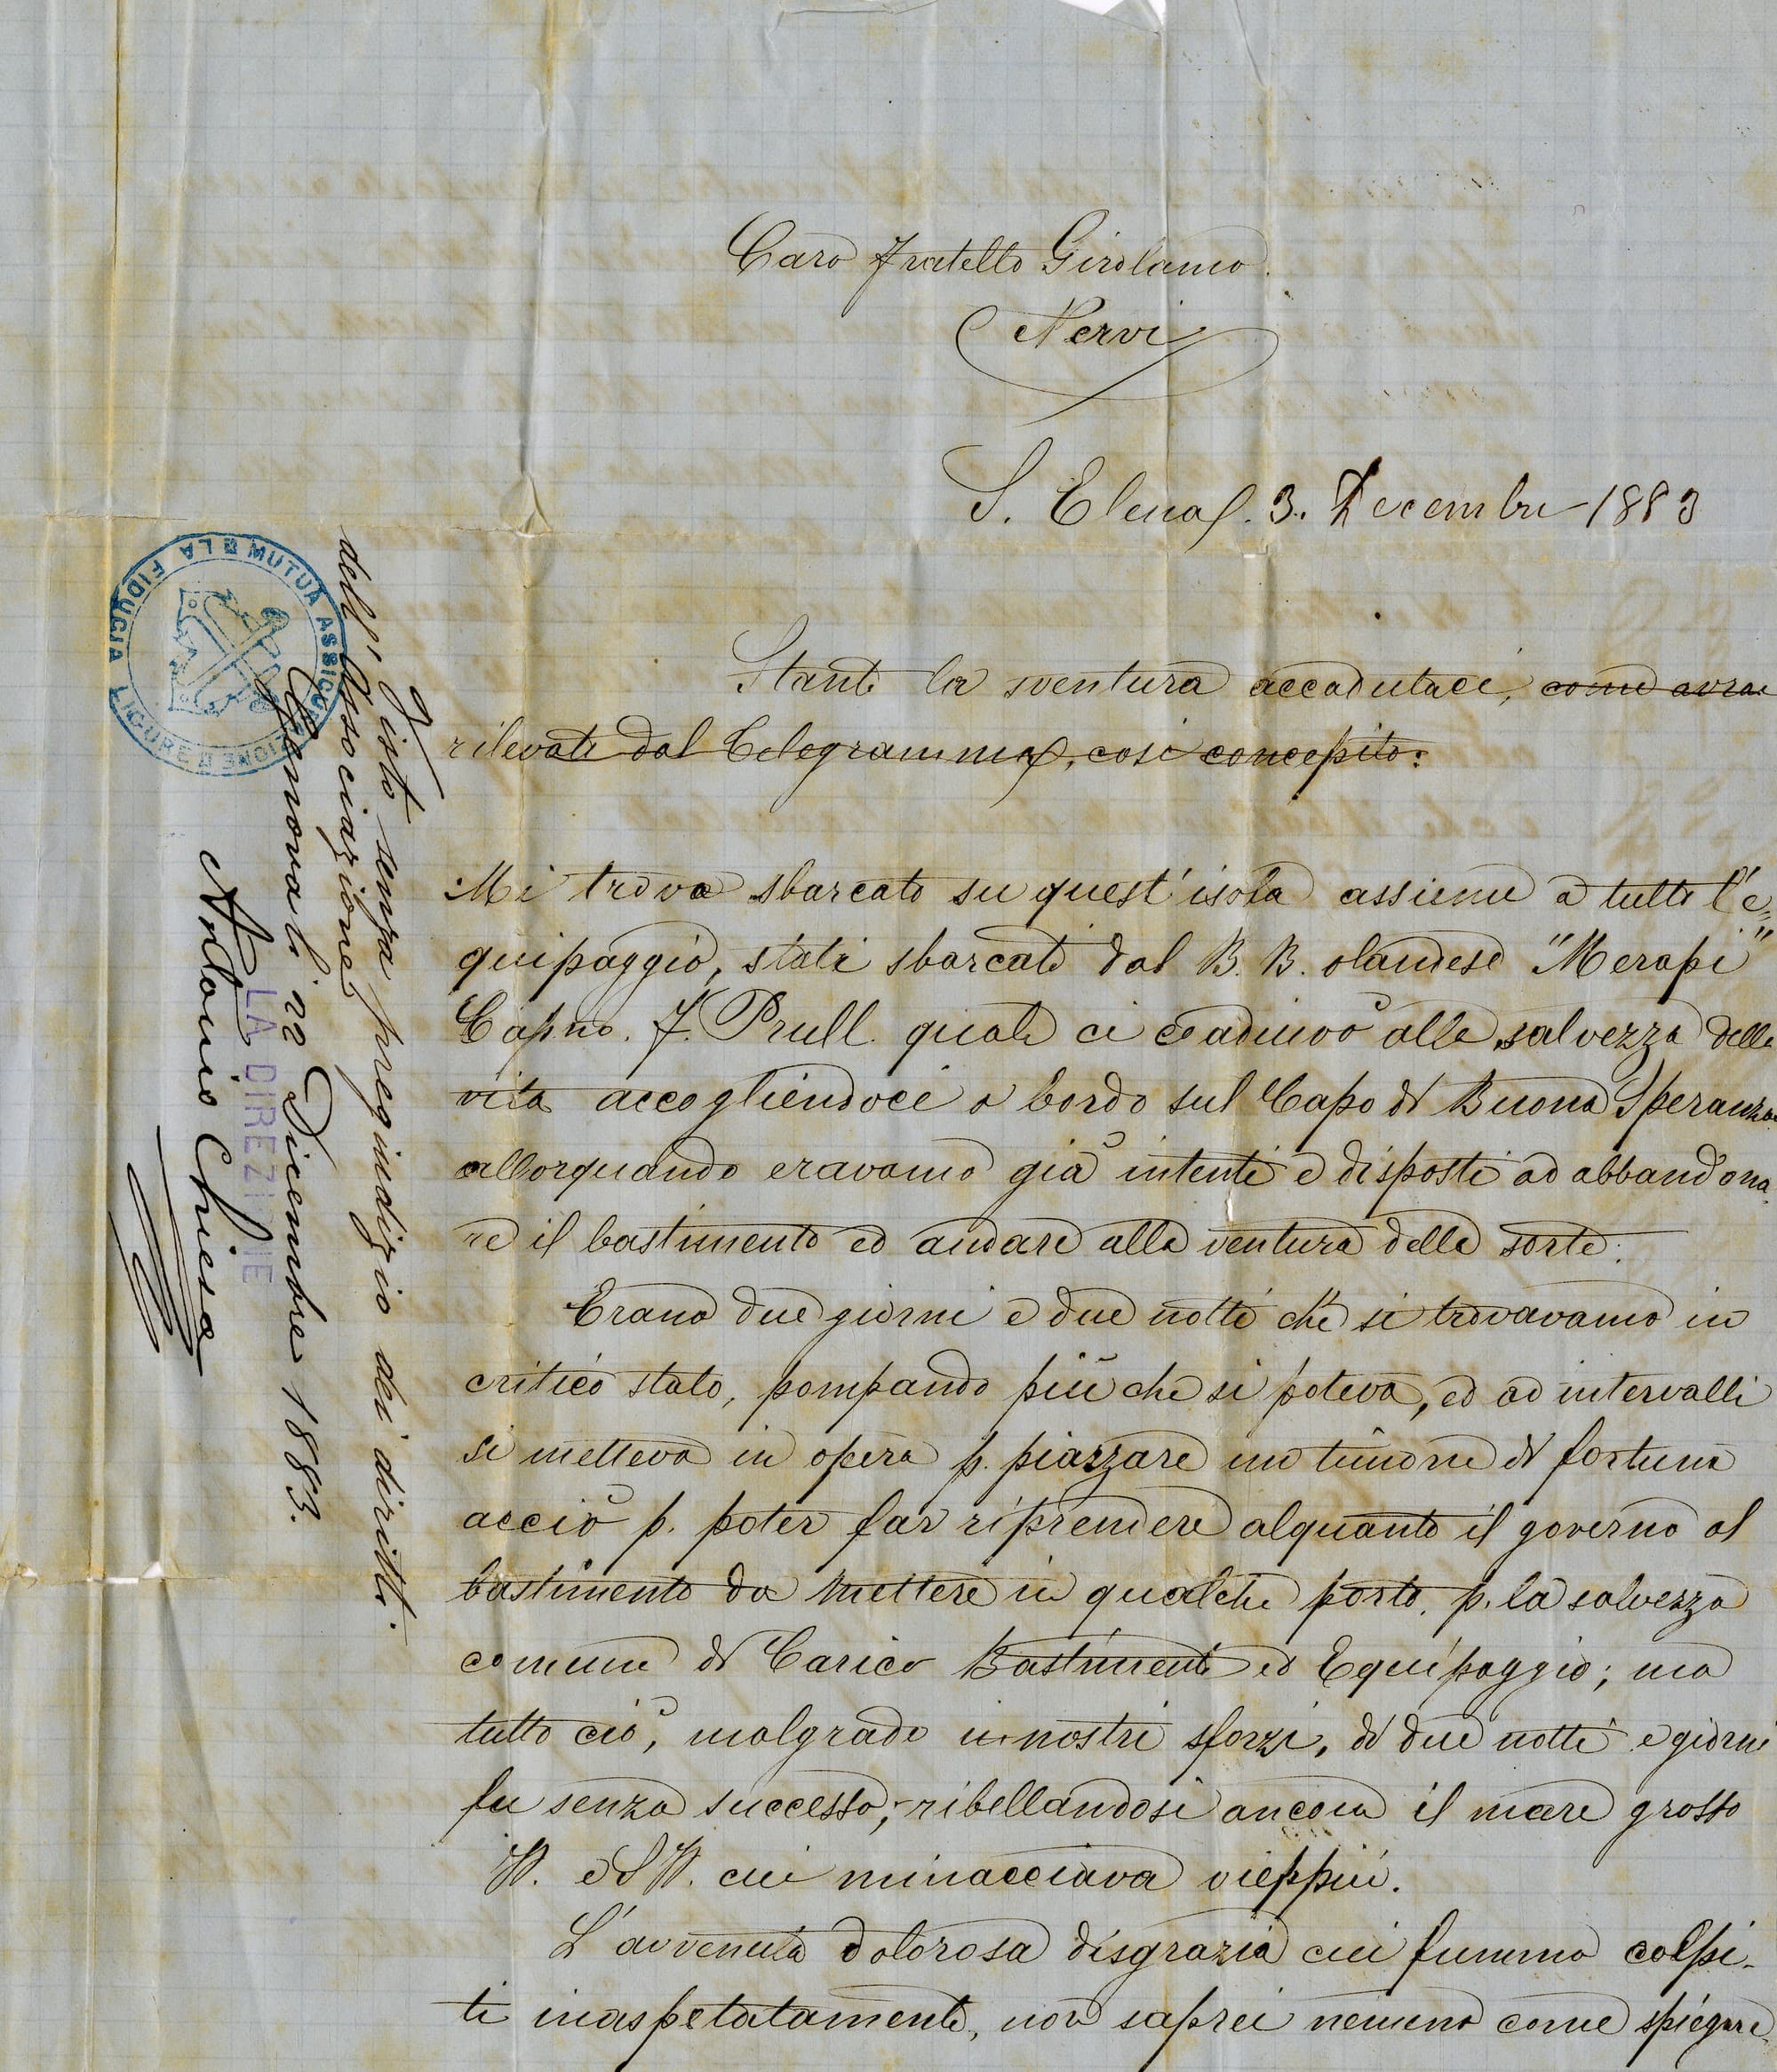 Caro fratello Girolamo.
Nervi
S. Elena. 3. Decembre 1883
Stante la sventura accadutaci, come avrai
rilevate dal Telegramma, così concepito:
Mi trovo sbarcato su quest'isola assieme a tutto l'e=
quipaggio, stati sbarcati dal B. B. olandese "Merapi"
Capno. J. Prull. quale ci coadiuvò alla salvezza della
vita accogliendoci a bordo sul Capo di Buona Speranza
allorquando eravamo già intenti e disposti ad abbandona-
re il bastimento ed andare alla ventura della sorte.
Erano due giorni e due notti che si trovavamo in
critico stato, pompando più che si poteva, ed ad intervalli
si metteva in opera p. piazzare un timone di fortuna
acciò p. poter far riprendere alquanto il governo al
bastimento da mettere in qualche porto. p. la salvezza
comune di Carico Bastimento ed Equipaggio; ma
tutto ciò, malgrado i nostri sforzi, di due notti e giorni
fu senza successo; ribellandosi ancora il mare grosso
W. e S W. cui minacciava vieppiù.
L'avvenuta dolorosa disgrazia cui fummo colpi-
ti inaspetatamente, non saprei nemeno come spiegare
Visto senza pregiudizio dei diritti
dell'Associazione
Genova li 22 Dicembre 1883.
LA DIREZIONE
Antonio Chiesa
MUTUA ASSICURAZIONE LIGURE LA FIDUCIA